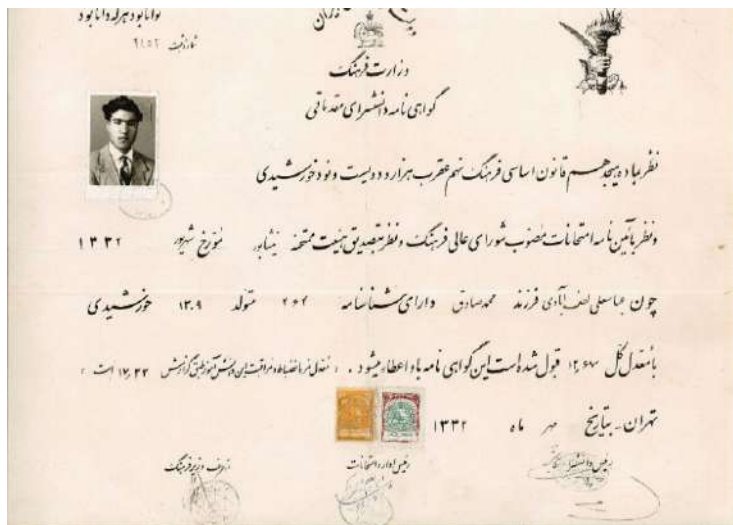 توانا بود هر که دانا بود
شماره ثبت ۲۱۵۲
وزارت فرهنگ
گواهی نامه دانشسرای مقدماتی
نظر بماده هیجدهم قانون اساسی فرهنگ نهم عقرب هزار و دویست و نود خورشیدی
و نظر بآئین نامه امتحانات مصوب شورای عالی فرهنگ و نظر بتصدیق هیئت ممتحنه نیشابور مورخ شهریور ۱۳۳۲
چون عباسعلی لطف آبادی فرزند محمدصادق دارای شناسنامه متولد ۱۳۰۹ خورشیدی
بامعدل کل قبول شده است این گواهی نامه باو اعطاء میشود .
تهران - بتاریخ مهر ماه ۱۳۳۲
رئیس اداره امتحانات
از طرف وزیر فرهنگ